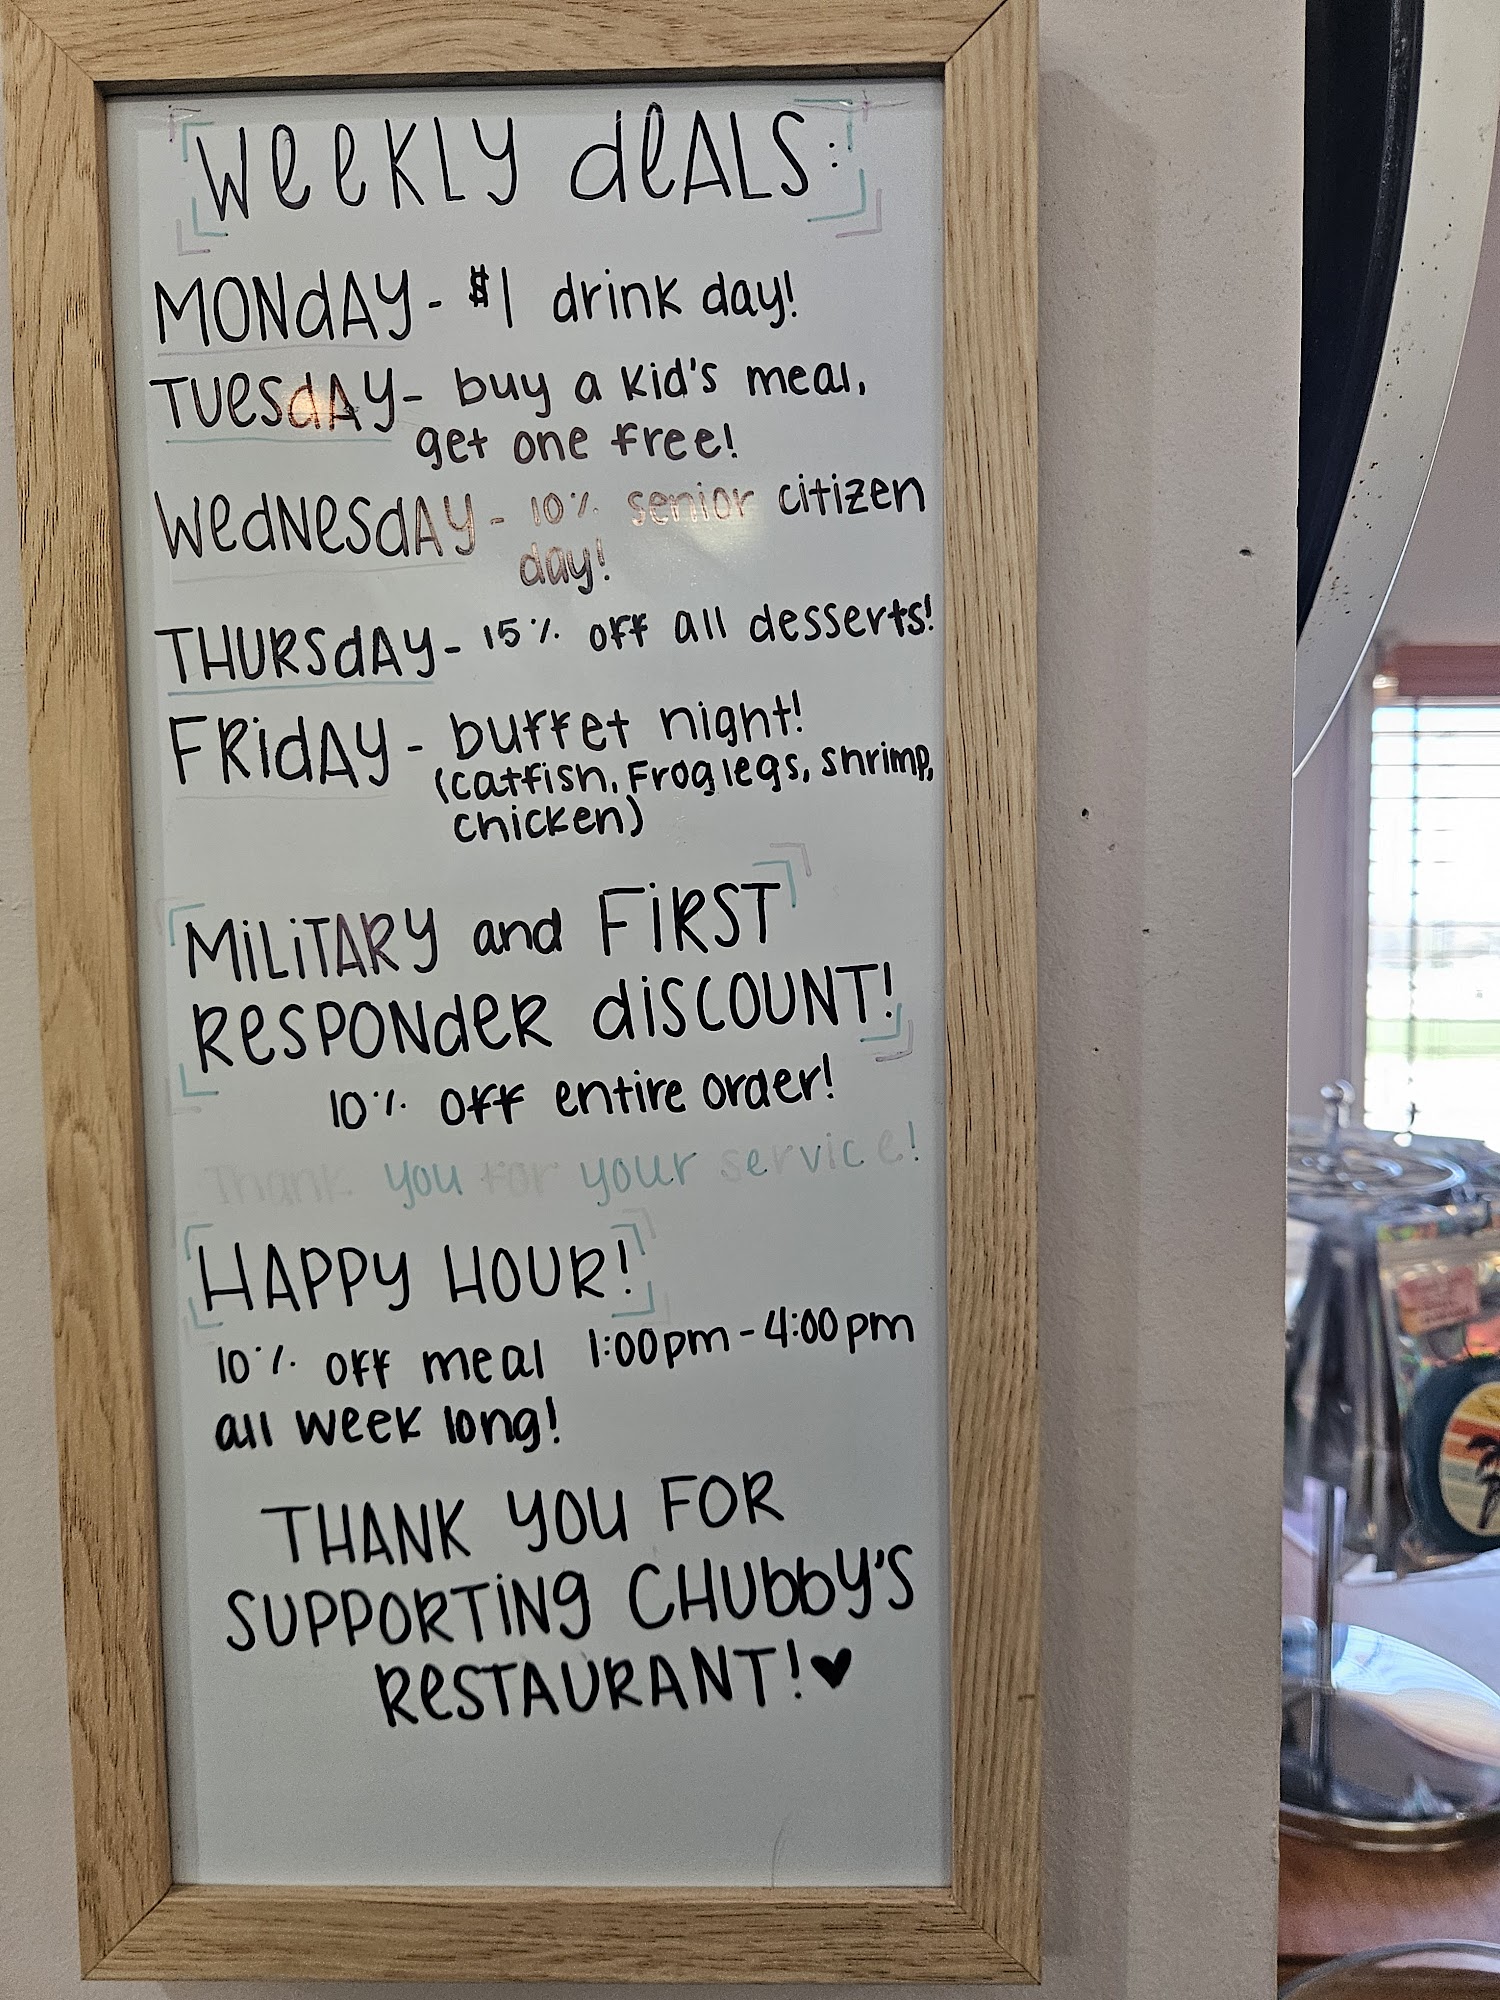 WeeKLY deALS:
MONdAY - $1 drink day!
TUesdAY - buy a kid's meal,
get one free!
WedNesdAY - 10% senior citizen
day!
THURSdAY - 15% off all desserts!
FRidAY - buffet night!
(catfish, Frog legs, shrimp,
chicken)
MiLiTARY and FiRST
ReSPONdeR diSCOUNT!
10% off entire order!
Thank you for your service!
HAPPY HOUR!
10% off meal 1:00pm - 4:00pm
all week long!
THANK YOU FOR
SUPPORTiNg CHUbbY'S
ReSTAURANT! ♥